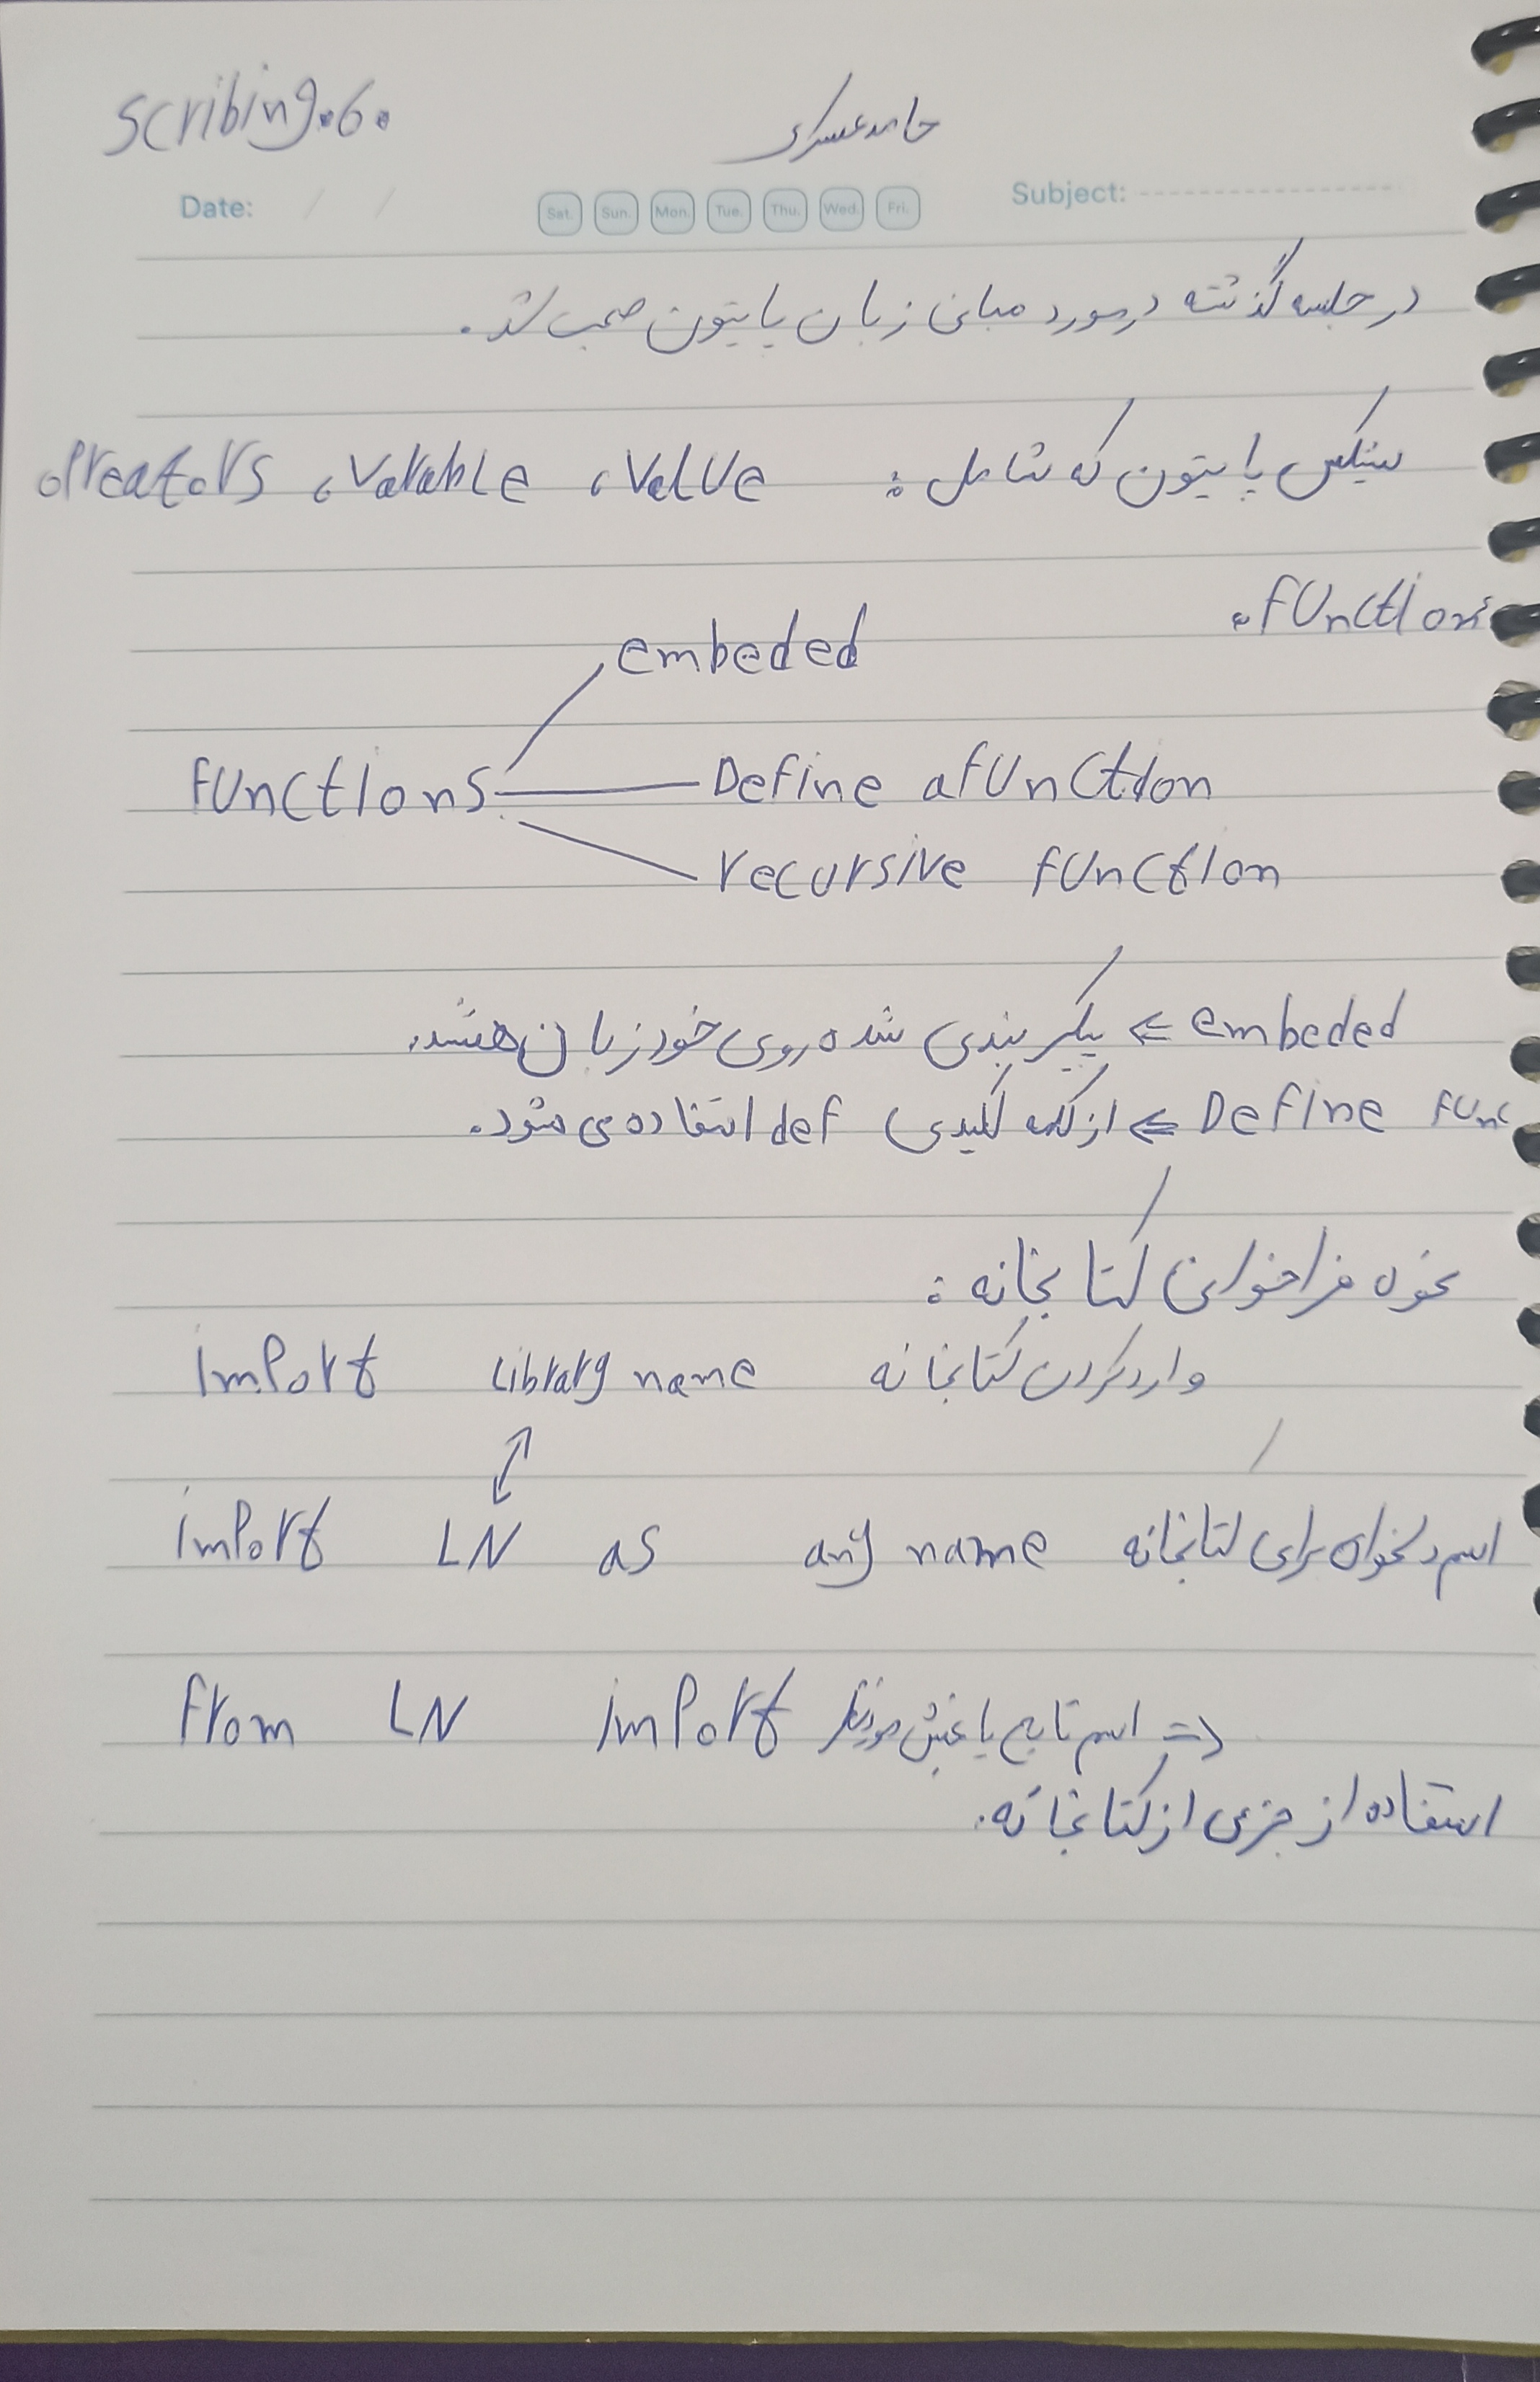 scribing.6.
حامد عسکری
Date: / /
Sat. Sun. Mon. Tue. Thu. Wed. Fri.
Subject:
در جلسه گذشته درمورد مبانی زبان پایتون صحبت شد.
سینکس پایتون که شامل: Value، Varable، oPreators
functions.
embeded
functions
Define a function
recursive function
embeded ⇐ پیکربندی شده روی خود زبان هستند.
Define func ⇐ از کلمه کلیدی def استفاده می شود.
نحوه فراخوانی کتابخانه:
import Library name وارد کردن کتابخانه
import LN as any name اسم دلخواه برای کتابخانه
from LN import اسم تابع یا بخش موردنظر ⇒
استفاده از جزی از کتابخانه.